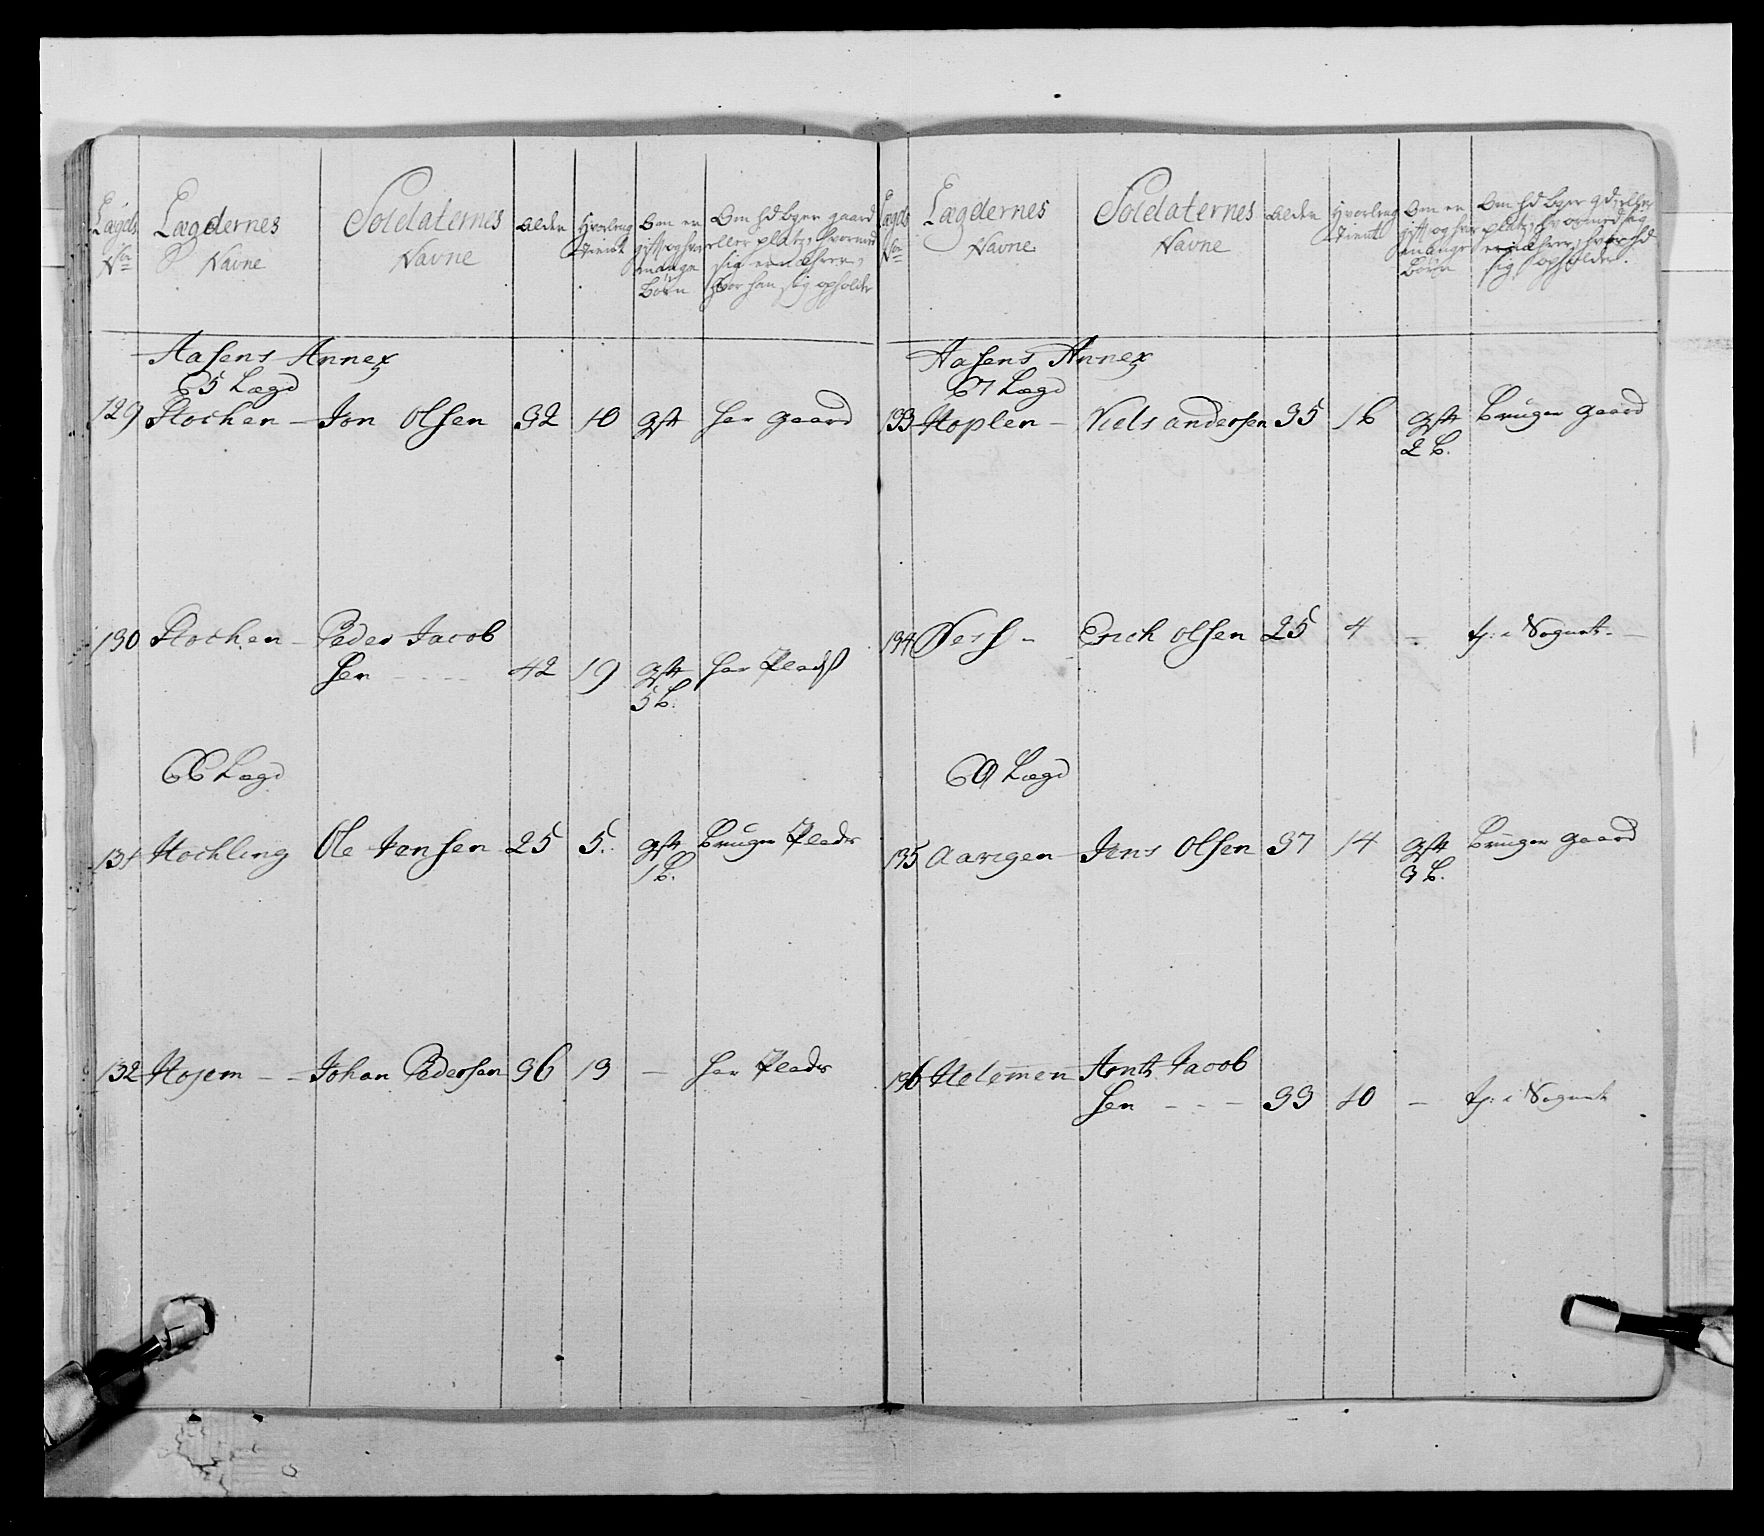 Lægds No
Lægdernes Navne
Soldaternes Navne
Alder
Hvorleng tient
Om er gift og hvor mange Børn
Om hd bger gaard eller platz, hvormed sig ernæhrer, hvor han sig opholder
Aasens Annex
65 Lægd
129 Stochen - Jon Olsen 32 10 gift har gaard
130 Stochen - Peder Jacob
sen - - - - 42 19 gift har Pladß
5 b.
66 Lægd
131 Hochling Ole Jensen 25 5. gift Bruger Plads
1 b.
132 Hojem - - Johan Pedersen 36 13 - har Plads
Lægds No
Lægdernes Navne
Soldaternes Navne
Alder
Hvorleng tient
Om er gift og hvor mange Børn
Om hd bger gd eller platz, hvormed sig ernæhrer, hvor hd sig opholder.
Aasens Annex
67 Lægd
133 Hoplen - Niels andersen 35 16 gift Bruger gaard
2 b.
134 Ness - Erich Olsen 25 4 - i Sognet -
Lægd
135 Aavigen - Jens Olsen 37 14 gift Bruger gaard
3 b.
136 Helemen Arnt Jacob
sen - - - 33 10 - i Sognet